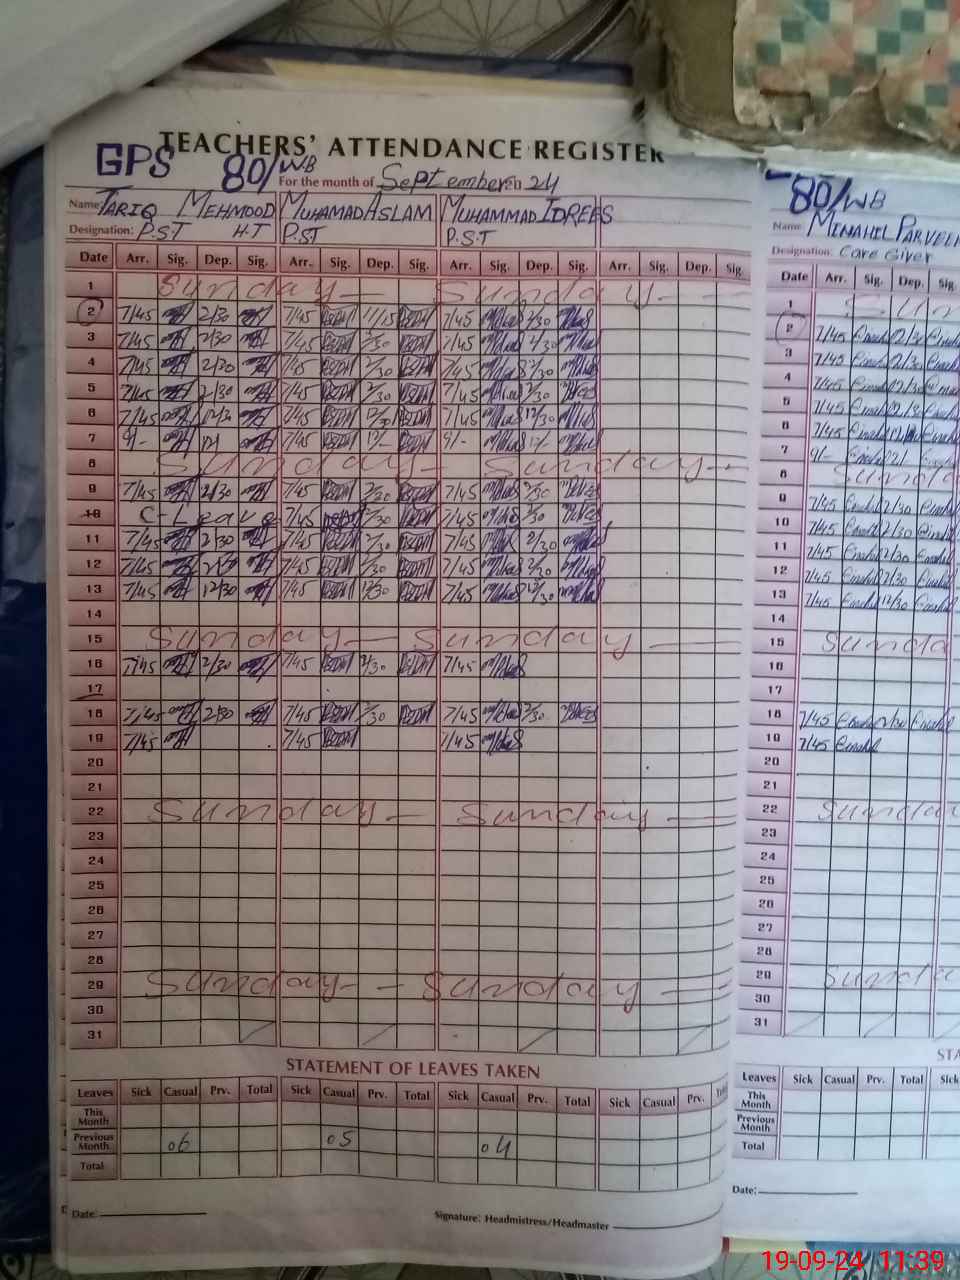 TEACHERS' ATTENDANCE REGISTER
GPS 80/WB
For the month of September 24
Name TARIQ MEHMOOD MUHAMAD ASLAM MUHAMMAD IDREES
Designation: P.S.T H.T P.ST P.S.T
Date Arr. Sig. Dep. Sig. Arr. Sig. Dep. Sig. Arr. Sig. Dep. Sig. Arr. Sig. Dep. Sig.
1 Sunday Sunday
2 7/45 2/30 7/45 11/15 7/45 2/30
3 7/45 2/30 7/45 2/30 7/45 2/30
4 7/45 2/30 7/45 2/30 7/45 2/30
5 7/45 2/30 7/45 2/30 7/45 2/30
6 7/45 12/30 7/45 12/30 7/45 12/30
7 9/- 7/45 12/- 9/-
8 Sunday Sunday
9 7/45 2/30 7/45 2/30 7/45 2/30
10 C-Leave 7/45 2/30 7/45 2/30
11 7/45 2/30 7/45 2/30 7/45 2/30
12 7/45 2/30 7/45 2/30 7/45 2/30
13 7/45 12/30 7/45 12/30 7/45 12/30
14
15 Sunday Sunday
16 7/45 2/30 7/45 2/30 7/45
17
18 7/45 2/30 7/45 2/30 7/45 2/30
19 7/45 7/45 7/45
20
21
22 Sunday Sunday
23
24
25
26
27
28
29 Sunday Sunday
30
31
STATEMENT OF LEAVES TAKEN
Leaves Sick Casual Prv. Total Sick Casual Prv. Total Sick Casual Prv. Total Sick Casual Prv.
This Month
Previous Month 06 05 04
Total
Date:
Signature: Headmistress/Headmaster
80/WB
Name MINAHIL
Designation: Care Giver
Date Arr. Sig. Dep. Sig.
1 Sun
2 7/45 2/30
3 7/45 2/30
4 7/45 2/30
5 7/45 2/30
6 7/45
7 9/-
8 Sunda
9 7/45 2/30
10 7/45 2/30
11 7/45 2/30
12 7/45 2/30
13 7/45 12/30
14
15 Sunda
16
17
18 7/45 2/30
19 7/45
20
21
22 Sunday
23
24
25
26
27
28
29 Sunda
30
31
STA
Leaves Sick Casual Prv. Total Sick
This Month
Previous Month
Total
Date:
19-09-24 11:39